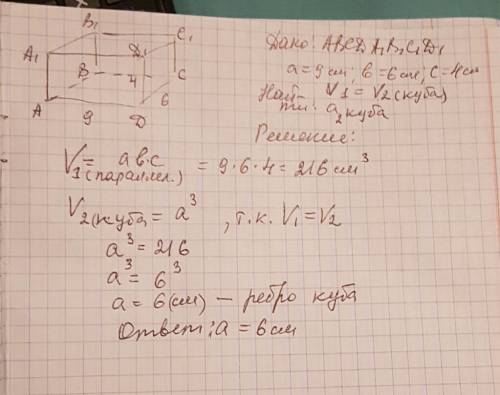 B₁ C₁
A₁ D₁
B 4 C
6
A 9 D
Дано: ABCD A₁B₁C₁D₁
a = 9 см; b = 6 см; c = 4 см
Най-ти: V₁ = V₂ (куба)
a₂ куба
Решение:
V₁ (параллел.) = a b · c = 9 · 6 · 4 = 216 см³
V₂ (куба) = a³, т.к. V₁ = V₂
a³ = 216
a³ = 6³
a = 6 (см) — ребро куба
Ответ: a = 6 см